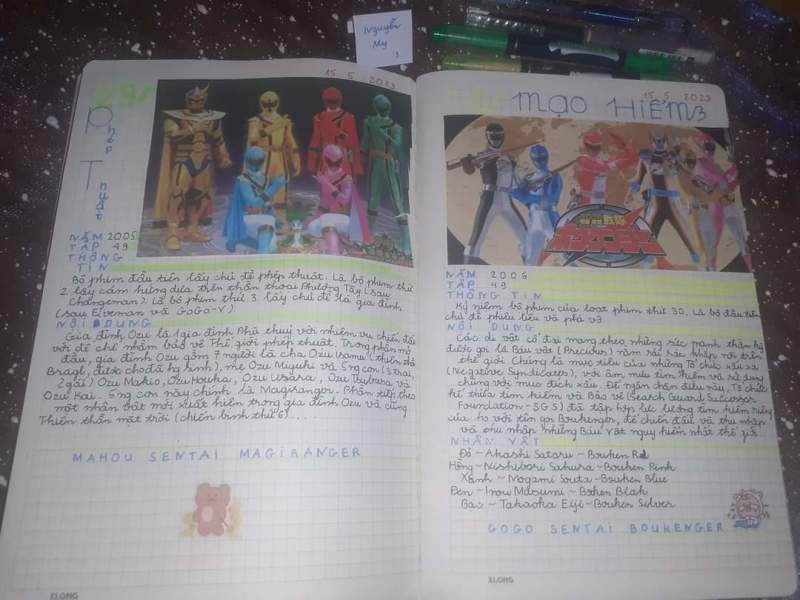 Nguyễn
My
15 5 2023
Phép
Thuật
NĂM 2005
TẬP 49
THÔNG
TIN
Bộ phim đầu tiên lấy chủ đề phép thuật. Là bộ phim thứ
2 lấy cảm hứng dựa trên thần thoại Phương Tây (sau
Changeman). Là bộ phim thứ 3 lấy chủ đề là gia đình
(sau Fiveman và GoGo-V).
NỘI DUNG
Gia đình Ozu là 1 gia đình Phù thuỷ với nhiệm vụ chiến đấu
với đế chế nhằm bảo vệ Thế giới phép thuật. Trong phần mở
đầu, gia đình Ozu gồm 7 người là cha Ozu Isamu
mẹ Ozu Miyuki và 5 ng con (3 trai,
2 gái) Ozu Makio, Ozu Houka, Ozu Urara, Ozu Tsubasa và
Ozu Kai. 5 ng con này chính là Magiranger. Phần tiếp theo
một nhân vật mới xuất hiện trong gia đình Ozu và cũng
Thiên thần mặt trời (chiến binh thứ 6)...
MAHOU SENTAI MAGIRANGER
XLONG
15 5 2023
MẠO HIỂM
NĂM 2006
TẬP 49
THÔNG TIN
Kỷ niệm bộ phim của loạt phim thứ 30. Là bộ đầu tiên
chủ đề phiêu lưu và phá vỡ.
NỘI DUNG
Các di vật cổ đại mang theo những sức mạnh thần kỳ
được gọi là Báu vật (Precious) nằm rải rác khắp nơi trên
thế giới. Chúng là mục tiêu của những Tổ chức xấu xa
(Negative Syndicates), với âm mưu tìm kiếm và sử dụng
chúng với mục đích xấu. Để ngăn chặn điều này, Tổ chức
kế thừa tìm kiếm và Bảo vệ (Search Guard Successor
Foundation - SGS) đã tập hợp lực lượng tìm kiếm riêng
của họ với tên gọi Boukenger, để chiến đấu và thu thập
và thu thập những Báu Vật nguy hiểm nhất thế giới...
NHÂN VẬT
Đỏ - Akashi Satoru - Bouken Red
Hồng - Nishihori Sakura - Bouken Pink
Xanh - Mogami Souta - Bouken Blue
Đen - Inou Masumi - Bohen Blah
Bạc - Takaoka Eiji - Bouken Silver
GOGO SENTAI BOUKENGER
XLONG